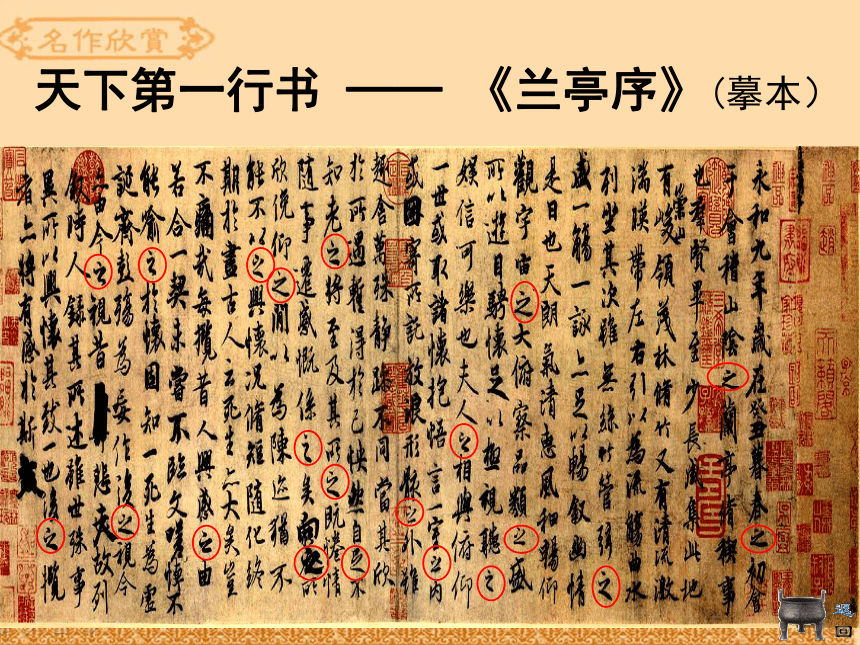 名作欣赏
天下第一行书 —— 《兰亭序》(摹本)
永和九年歲在癸丑暮春之初會
于會稽山陰之蘭亭脩稧事
也羣賢畢至少長咸集此地
有崇山峻領茂林脩竹又有清流激
湍暎帶左右引以為流觴曲水
列坐其次雖無絲竹管弦之
盛一觴一詠亦足以暢敘幽情
是日也天朗氣清惠風和暢仰
觀宇宙之大俯察品類之盛
所以遊目騁懷足以極視聽之
娛信可樂也夫人之相與俯仰
一世或取諸懷抱悟言一室之內
或因寄所託放浪形骸之外雖
趣舍萬殊靜躁不同當其欣
於所遇蹔得於己怏然自足不
知老之將至及其所之既惓情
隨事遷感慨係之矣向之所
欣俛仰之閒以為陳迹猶不
能不以之興懷況脩短隨化終
期於盡古人云死生亦大矣豈
不痛哉每攬昔人興感之由
若合一契未嘗不臨文嗟悼不
能喻之於懷固知一死生為虛
誕齊彭殤為妄作後之視今
亦由今之視昔悲夫故列
敘時人錄其所述雖世殊事
異所以興懷其致一也後之攬
者亦將有感於斯文
返回